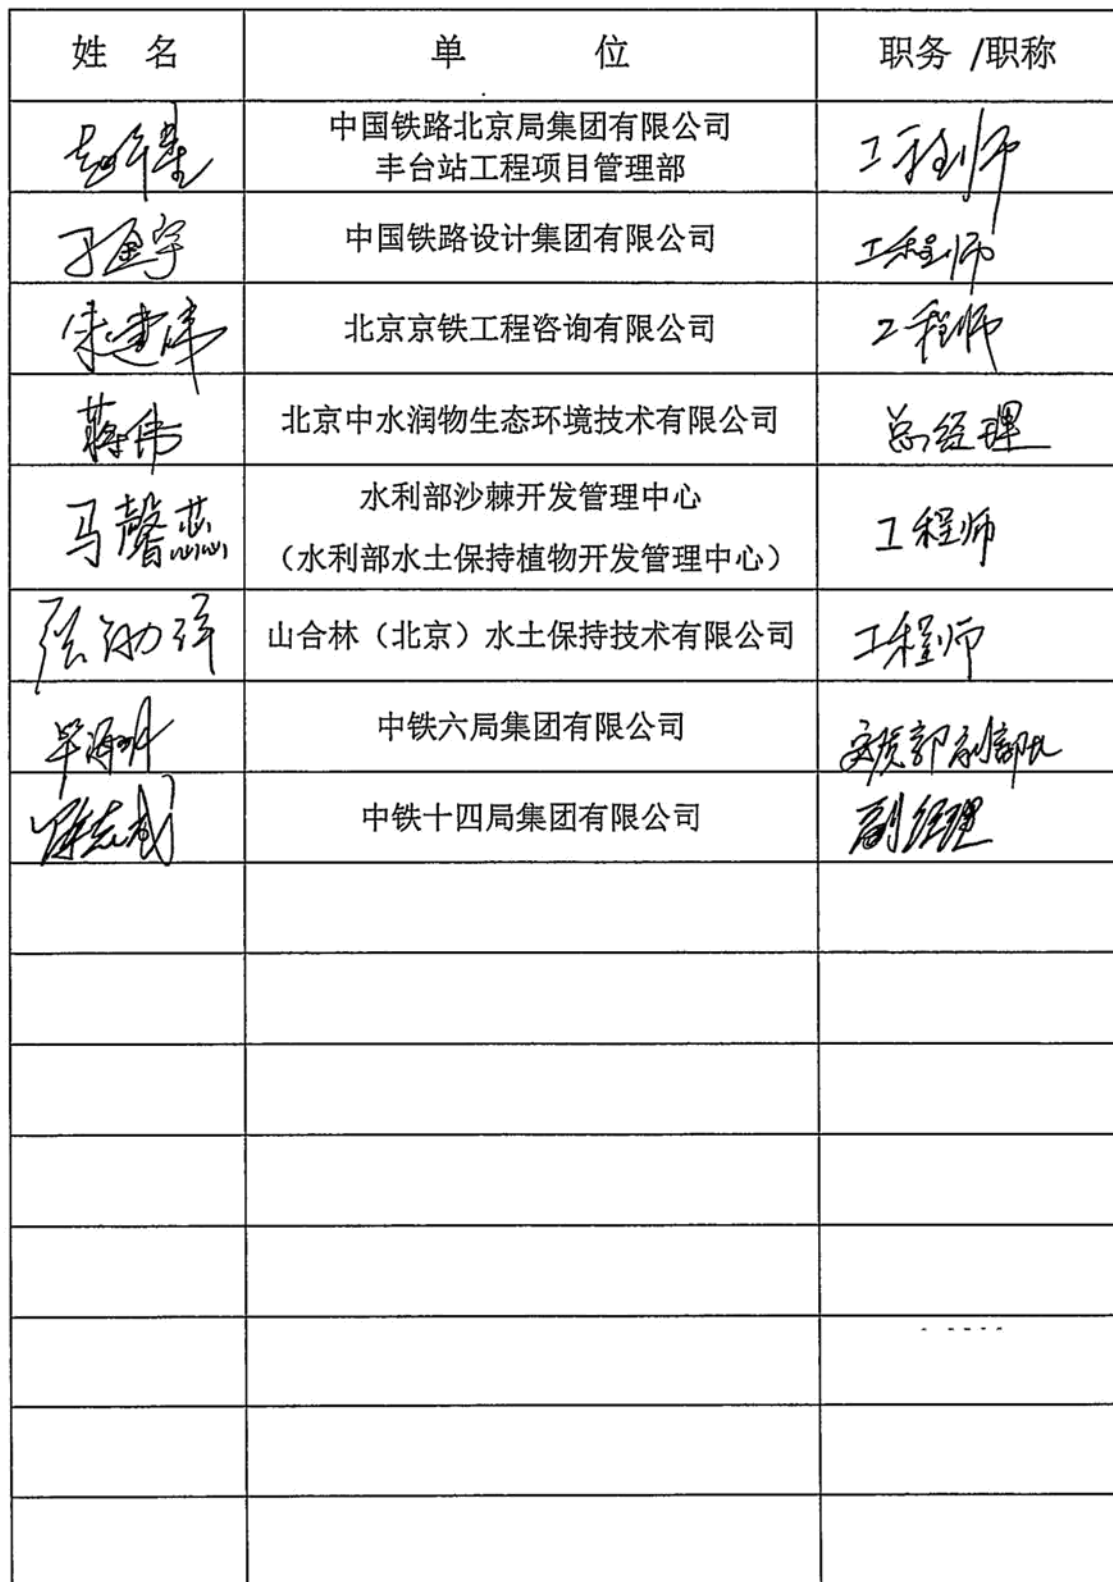 姓 名 单 位 职务 /职称
中国铁路北京局集团有限公司
丰台站工程项目管理部
工程师
中国铁路设计集团有限公司 工程师
宋建伟 北京京铁工程咨询有限公司 工程师
蒋伟 北京中水润物生态环境技术有限公司 总经理
水利部沙棘开发管理中心
马馨蕊 工程师
（水利部水土保持植物开发管理中心）
山合林（北京）水土保持技术有限公司 工程师
中铁六局集团有限公司 副部长
中铁十四局集团有限公司 副经理